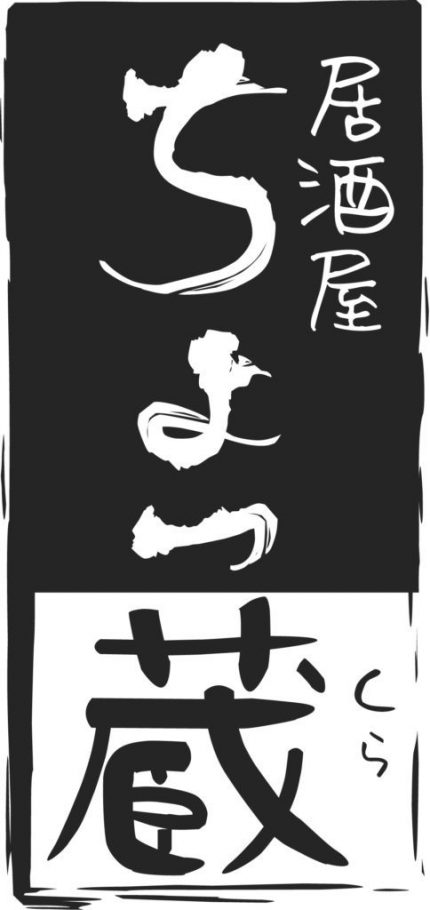 居酒屋
ちょっ蔵
くら